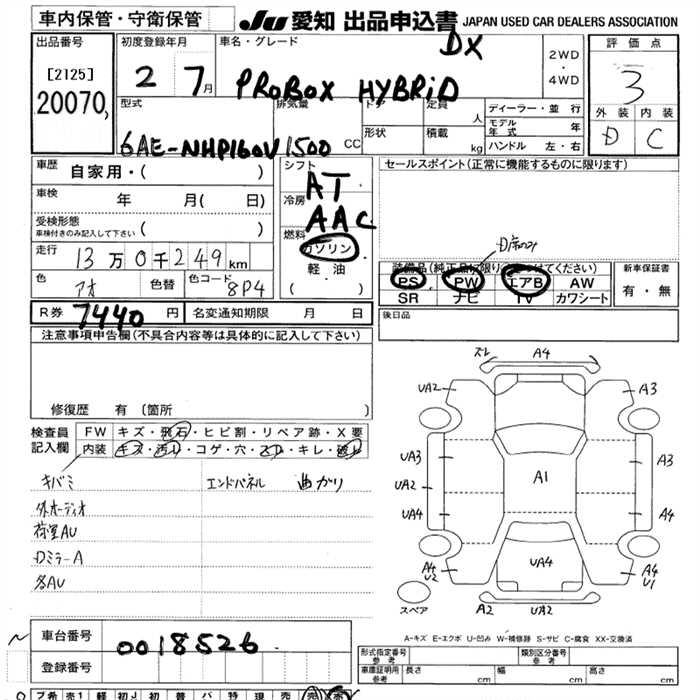 車内保管・守衛保管 JU 愛知 出品申込書 JAPAN USED CAR DEALERS ASSOCIATION
出品番号 初度登録年月 車名・グレード DX 評価点
[2125] 2 7月 PROBOX HYBRiD 2WD・4WD 3
20070, 外装 内装
型式 排気量 ドア 定員 人 ディーラー・並行 D C
6AE-NHP160V 1500 CC 形状 積載 kg モデル年式 年
ハンドル 左・右
車歴 自家用・( ) シフト AT セールスポイント(正常に機能するものに限ります)
車検 年 月( 日) 冷房 AAC
受検形態 車検付きのみ記入して下さい ( ) 燃料 ガソリン
走行 13万0千249km 軽油 装備品(純正品に限り○をつけてください) 新車保証書
色 アオ 色替 色コード 8P4 ( ) PS PW エアB AW 有・無
SR ナビ TV カワシート
R券 7440 円 名変通知期限 月 日 後日品
注意事項申告欄(不具合内容等は具体的に記入して下さい)
修復歴 有(箇所 )
検査員記入欄 FW キズ・飛石・ヒビ割・リペア跡・X要
内装 キズ・汚れ・コゲ・穴・スレ・キレ・破れ
キバミ エンドパネル 曲がり
外オーディオ
荷室AU
DミラーA
各AU
ズレ A4
UA2 A3
UA3 A3
UA2 A1
UA4 A4
UA4
A4 U2 A4 U1
スペア A2 UA2
A-キズ E-エクボ U-凹み W-補修跡 S-サビ C-腐食 XX-交換済
車台番号 0018526
登録番号
形式指定番号 参考 類別区分番号 参考
車庫証明用 参考 長さ cm 幅 cm 高さ cm